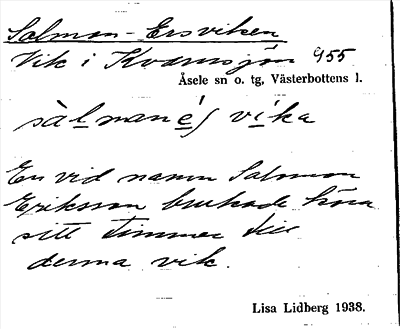 Salmon-Ersviken
Vik i Kvarnsjön 955
Åsele sn o. tg, Västerbottens l.
sàlmané/ vìka
En vid namn Salmon
Eriksson brukade köra
sitt timmer till
denna vik.
Lisa Lidberg 1938.